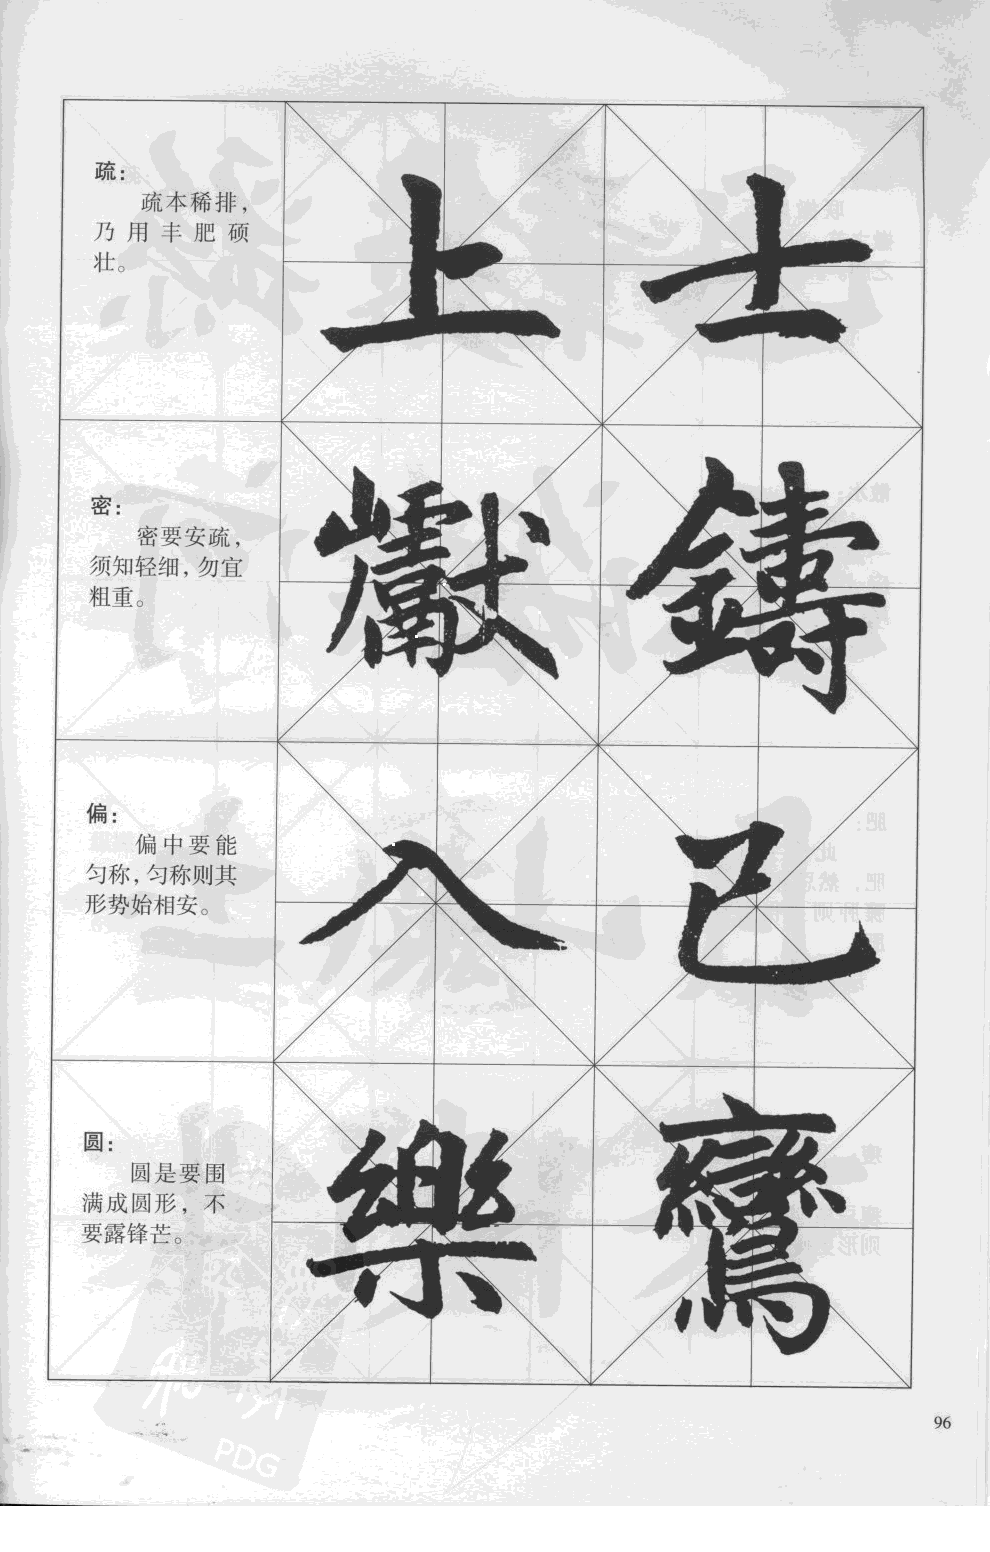 疏：
疏本稀排，
乃用丰肥硕
壮。
上 士
密：
密要安疏，
须知轻细，勿宜
粗重。
獻 鑄
偏：
偏中要能
匀称，匀称则其
形势始相安。
入 己
圆：
圆是要围
满成圆形，不
要露锋芒。
樂 鸞
96
PDG